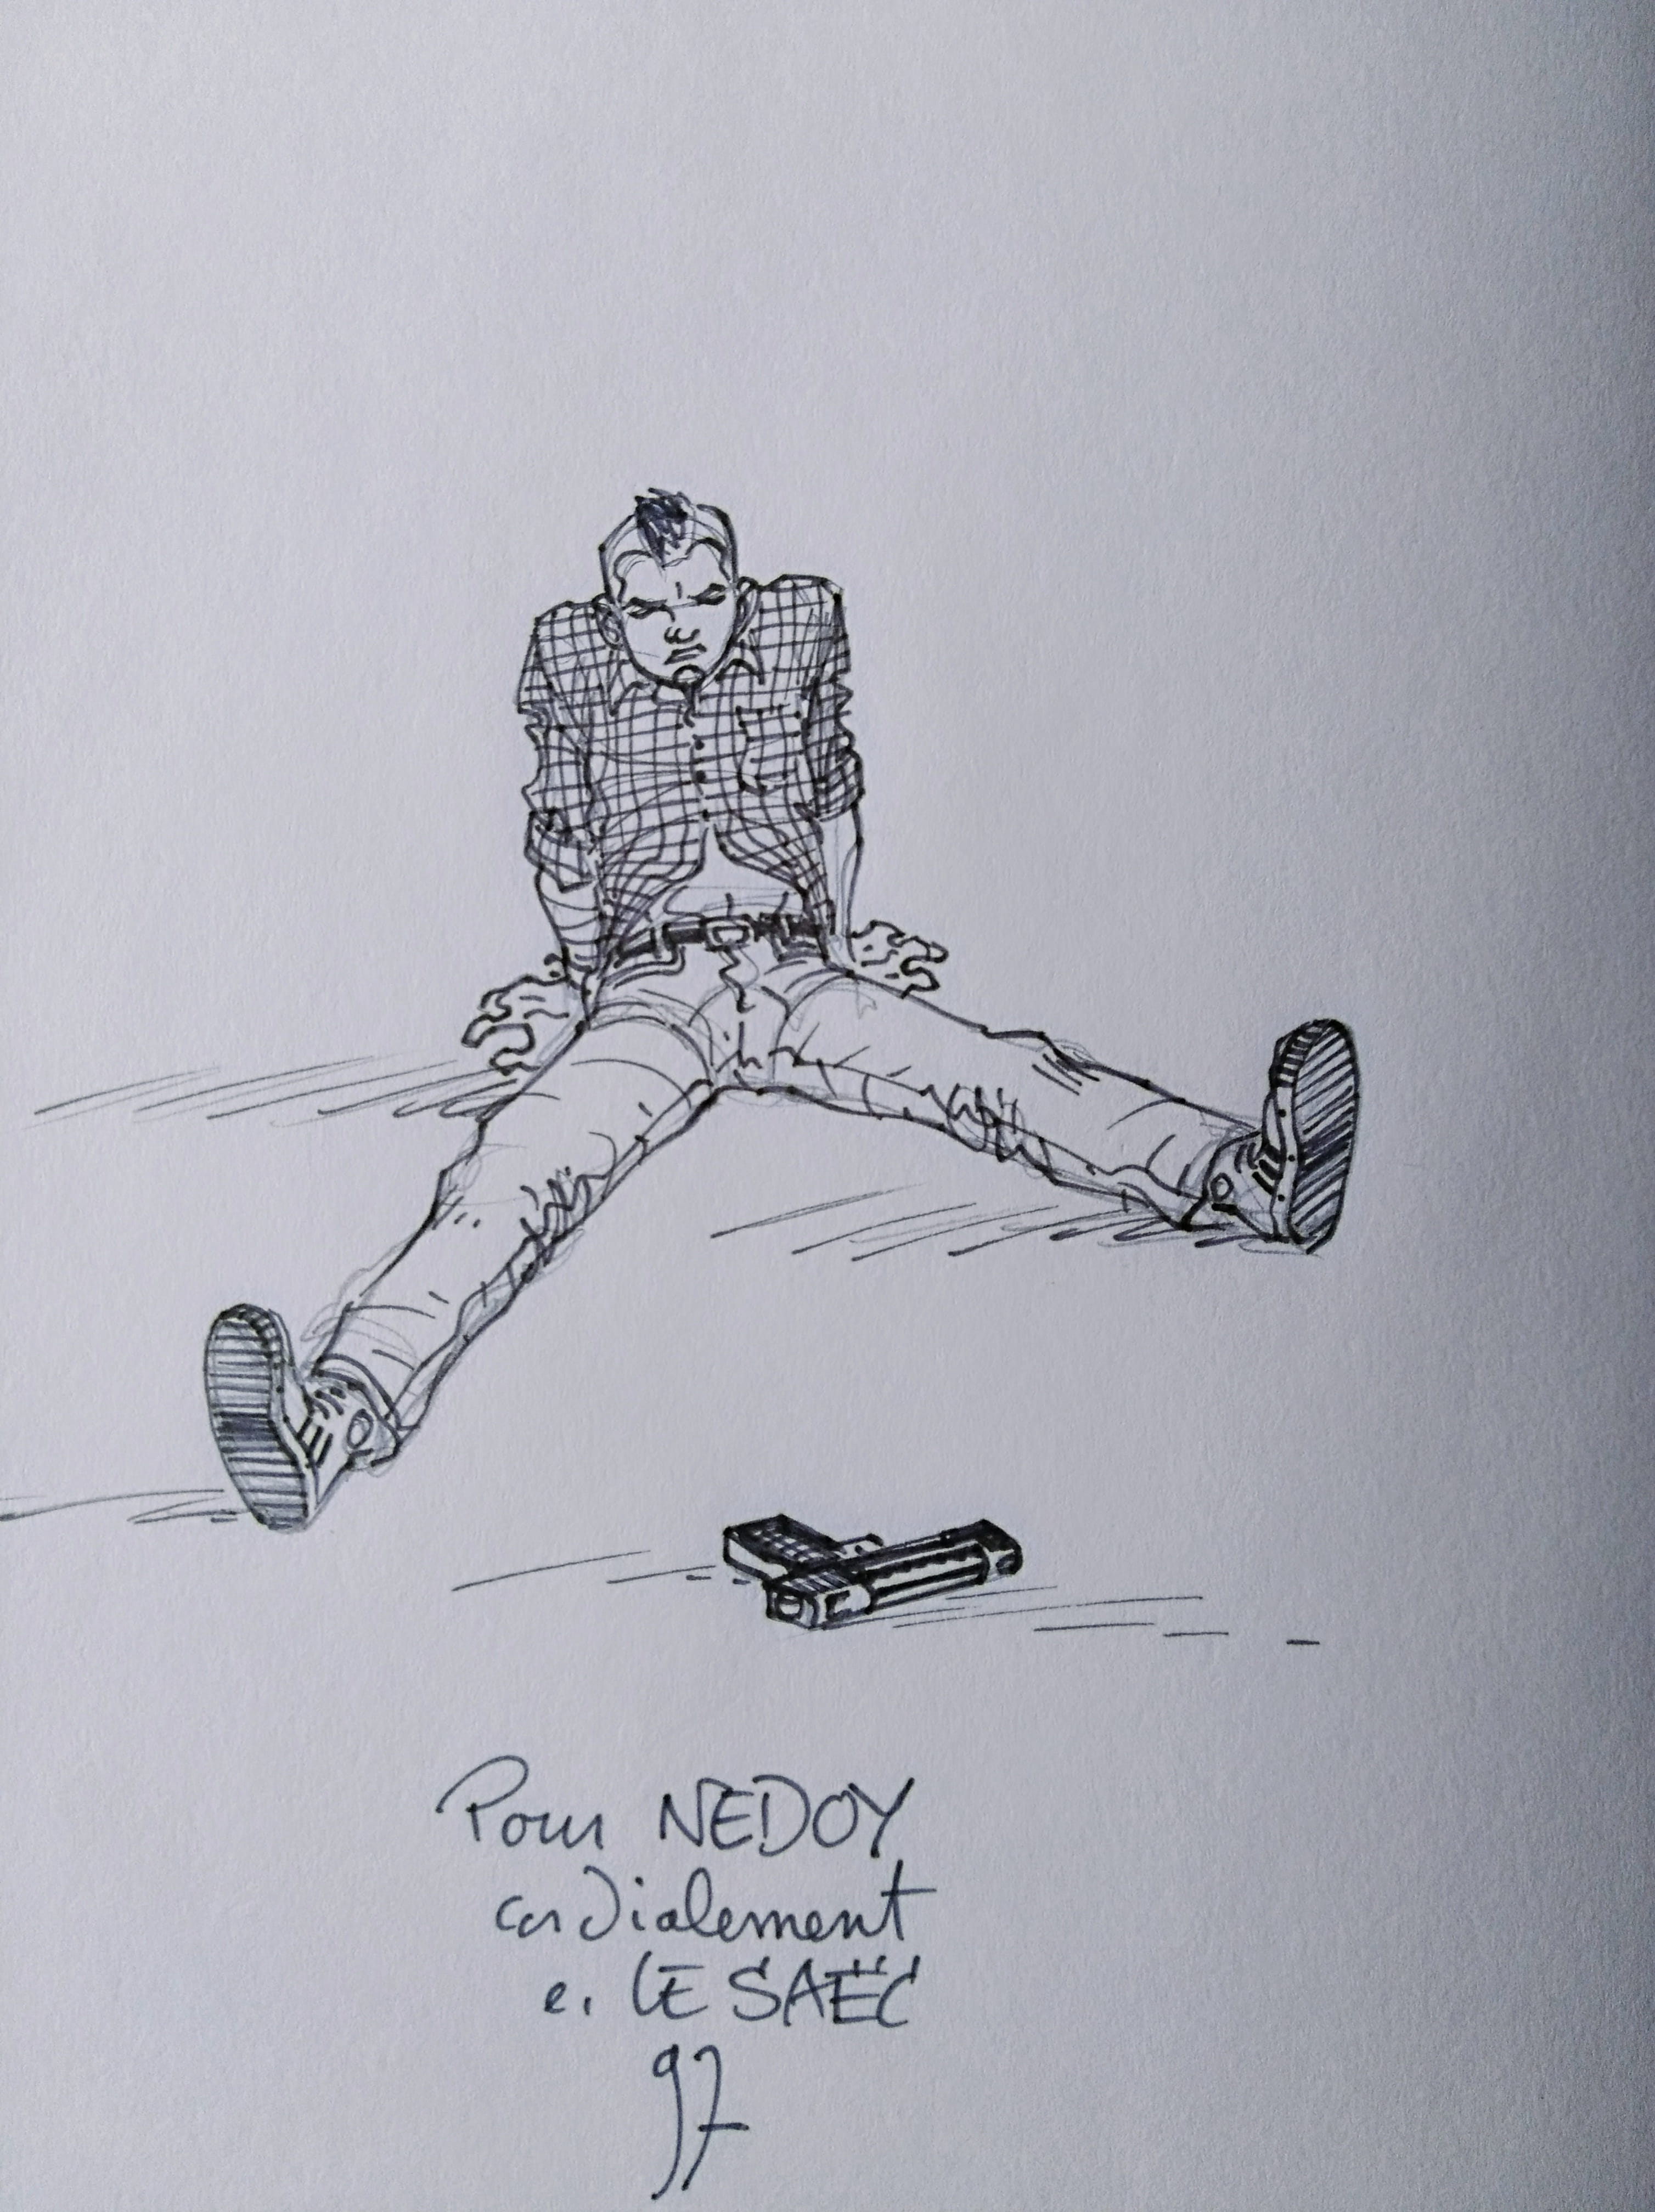 Pour NEDOY
cordialement
e. LE SAËC
97